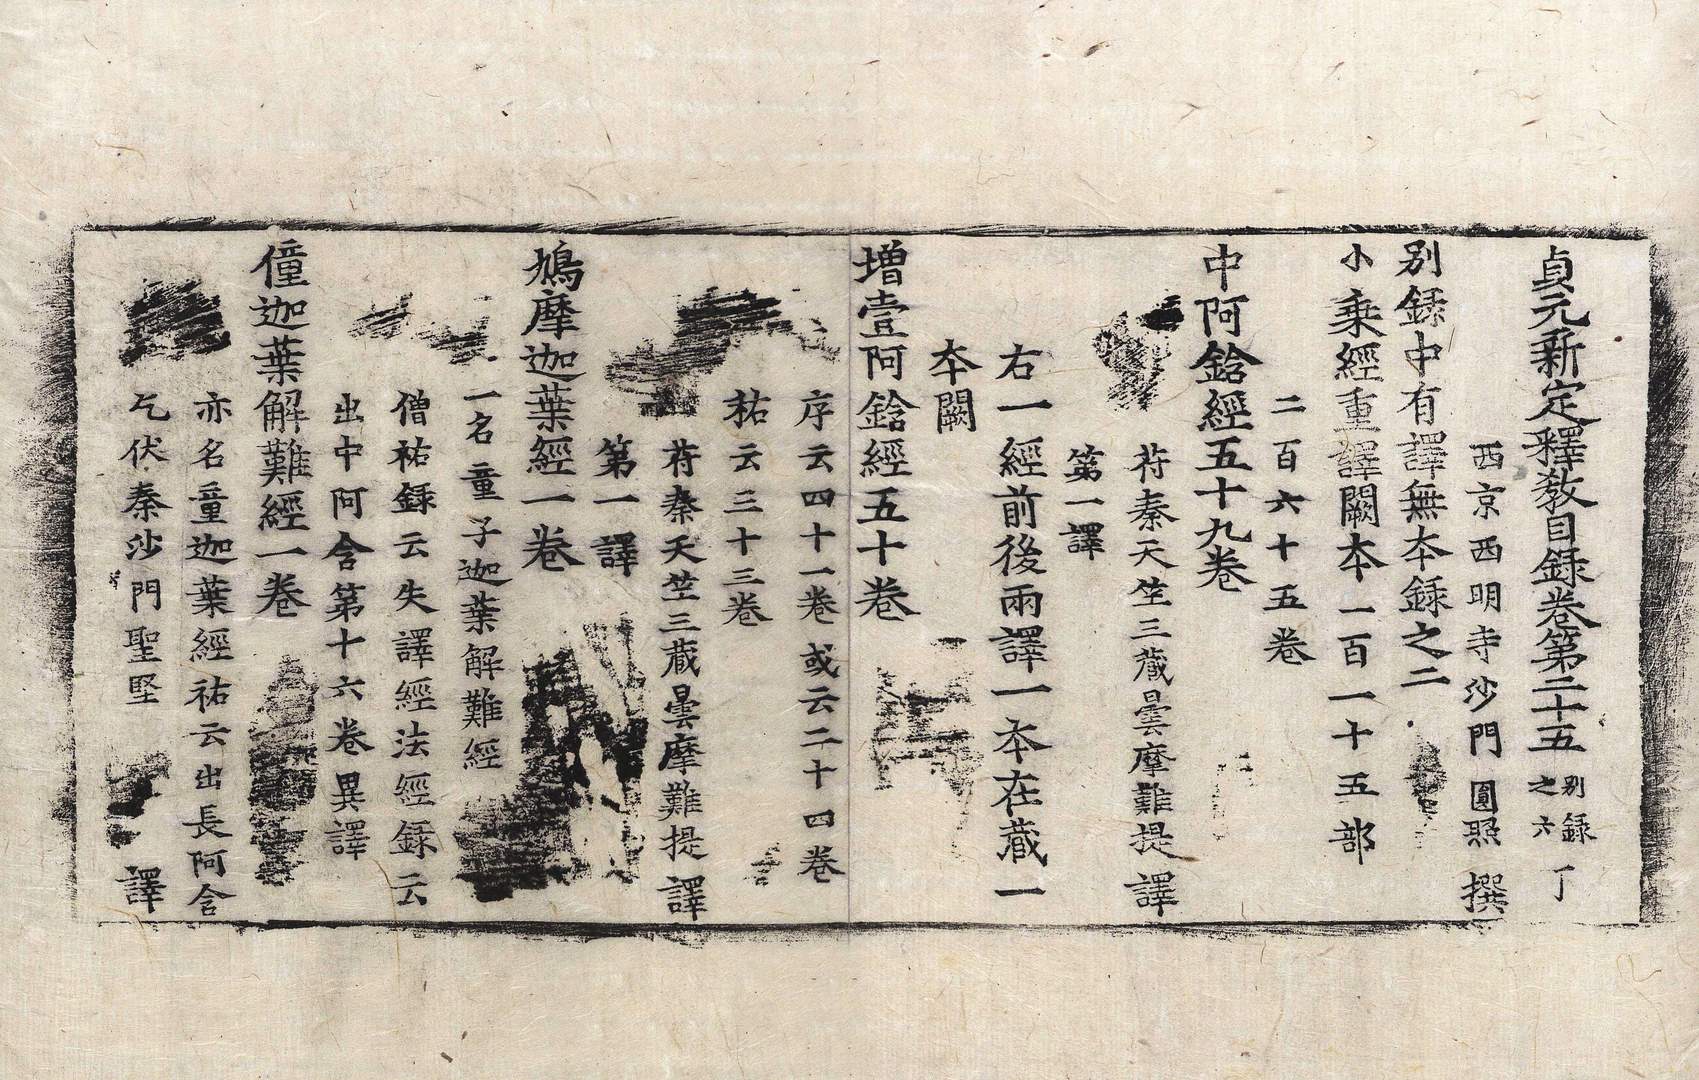 貞元新定釋教目録卷第二十五 别録之六 丁
西京西明寺沙門圓照 撰
别録中有譯無夲録之二
小乘經重譯闕夲一百一十五部
二百六十五卷
中阿鋡經五十九卷
苻秦天竺三藏曇摩難提 譯
第一譯
右一經前後兩譯一夲在藏一
夲闕
增壹阿鋡經五十卷
序云四十一卷或云二十四卷
祐云三十三卷
苻秦天竺三藏曇摩難提 譯
第一譯
鳩摩迦葉經一卷
一名童子迦葉解難經
僧祐録云失譯經法經録云
出中阿含第十六卷異譯
僮迦葉解難經一卷
亦名童迦葉經祐云出長阿含
乞伏秦沙門聖堅 譯